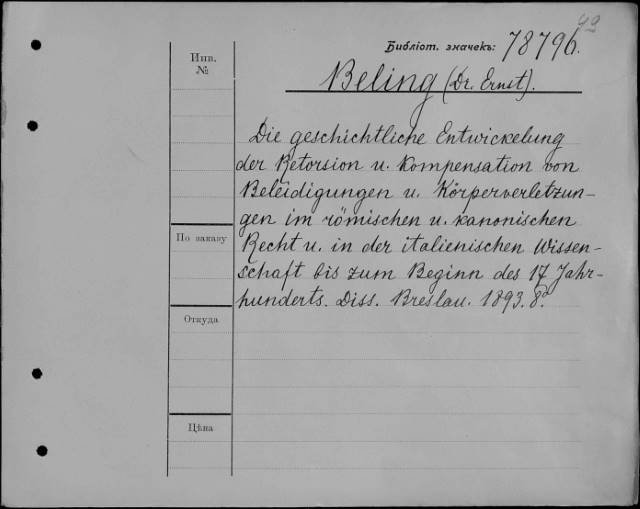 49
Библіот. значекъ: 78796.
Инв.
№
Beling (Dr. Ernst).
Die geschichtliche Entwickelung
der Retorsion u. Kompensation von
Beleidigungen u. Körperverletzun-
gen im römischen u. kanonischen
Recht u. in der italienischen Wissen-
schaft bis zum Beginn des 17 Jahr-
hunderts. Diss. Breslau. 1893. 8º.
По заказу
Откуда
Цѣна